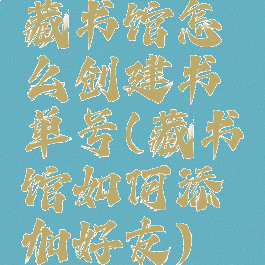 藏书馆怎
么创建书
单号(藏书
馆如何添
加好友)